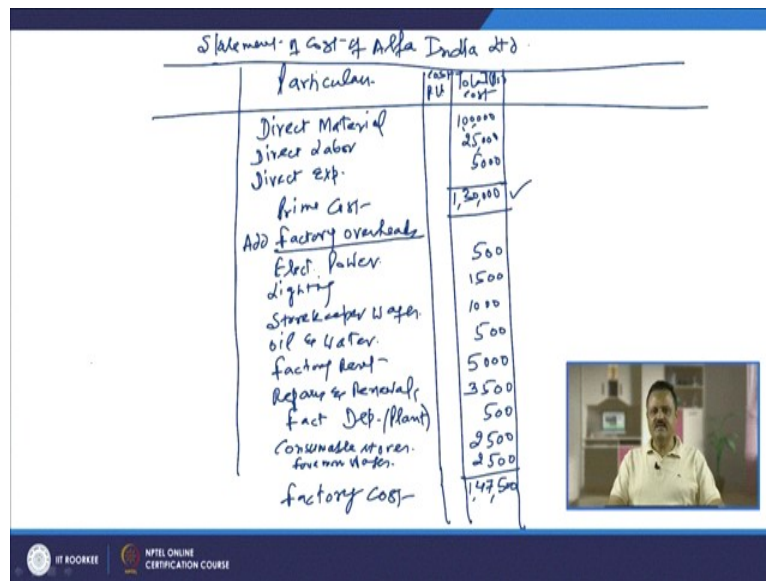 Statement of Cost of Alfa India Ltd.
Particulars Cost P.U Total (Rs) cost
Direct Material 1,00,000
Direct Labor 25,000
Direct Exp. 5000
Prime Cost 1,30,000 ✓
Add factory overheads
Elect. Power. 500
Lighting 1500
Storekeeper wages. 1000
Oil & Water. 500
factory Rent 5000
Repairs & Renewals 3500
fact Dep. (Plant) 500
Consumable stores. 2500
foremen wages. 2500
factory Cost 1,47,500
IIT ROORKEE
NPTEL ONLINE
CERTIFICATION COURSE